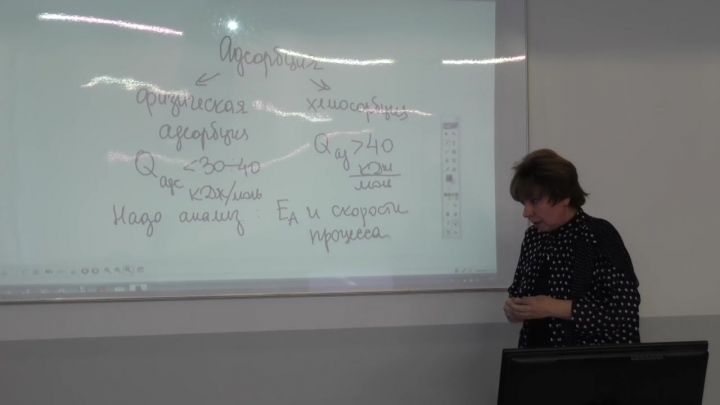 Адсорбция
физическая хемосорбция
адсорбция
Qадс <30-40 кДж/моль
Qад >40 кДж/моль
Надо анализ : EA и скорости
процесса